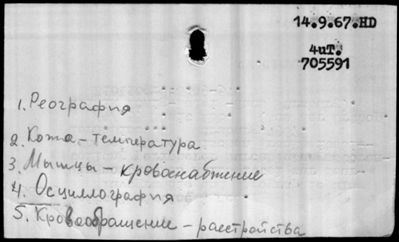 14.9.67.HD
4иT.
705591
1. Реография
2. Кожа - температура
3. Мышцы - кровоснабжение
4. Осциллография
5. Кровообращение - расстройства